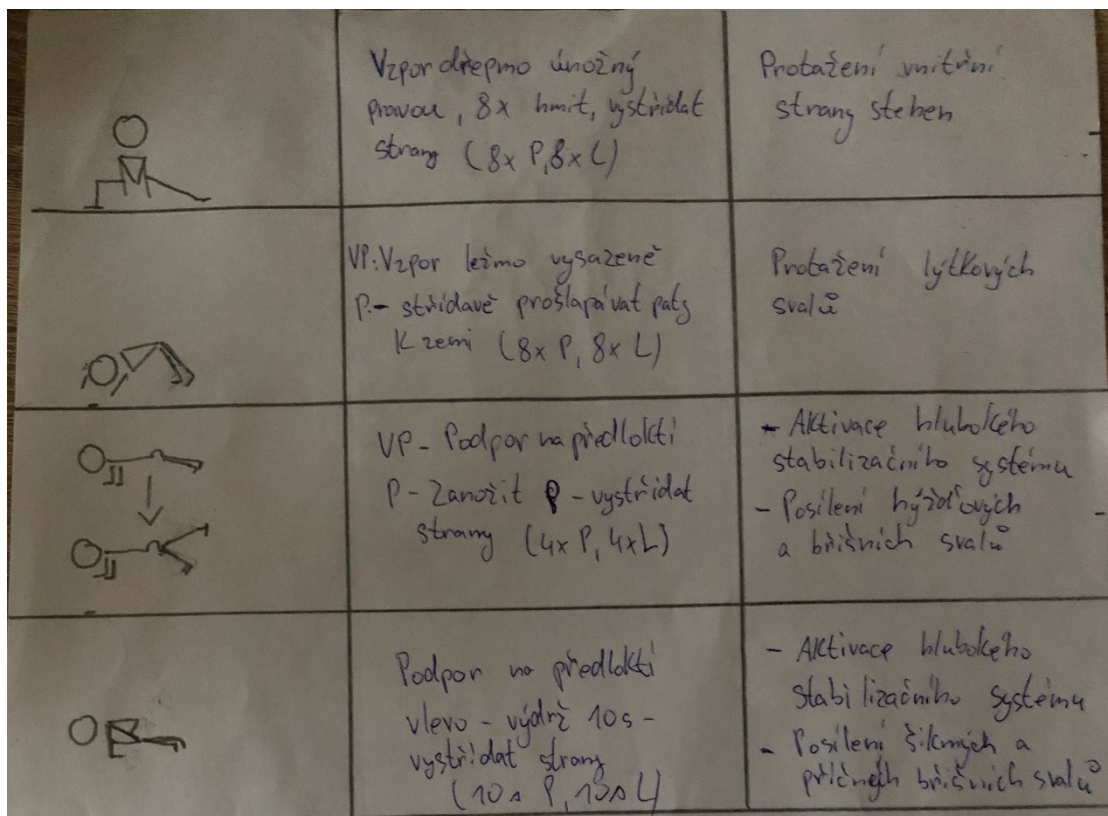 Vzpor dřepmo únožný
pravou, 8x hmit, vystřídat
strany (8x P, 8x L)
Protažení vnitřní
strany stehen
VP: Vzpor ležmo vysazeně
P.- střídavě prošlapávat paty
k zemi (8x P, 8x L)
Protažení lýtkových
svalů
VP- Podpor na předloktí
P- Zanožit P - vystřídat
strany (4x P, 4x L)
- Aktivace hlubokého
stabilizačního systému
- Posílení hýžďových
a břišních svalů
Podpor na předloktí
vlevo - výdrž 10s -
vystřídat strany
(10s P, 10s L)
- Aktivace hlubokého
stabilizačního systému
- Posílení šikmých a
příčných břišních svalů